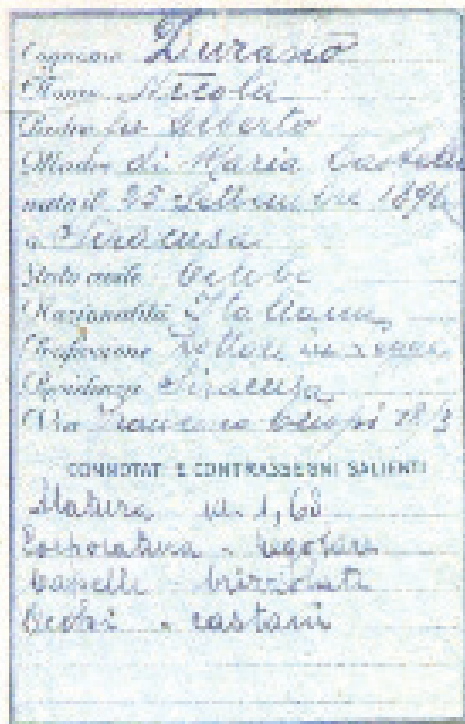 Cognome Durano
Nome Nicola
Padre fu Alberto
Madre di Maria
nato il 25 Settembre
a Siracusa
Stato civile Celibe
Nazionalità Italiana
Professione Dottore in
Residenza Siracusa
Via Francesco Crispi
CONNOTATI E CONTRASSEGNI SALIENTI
Statura - m. 1,68
Corporatura - regolare
Capelli - brizzolati
Occhi - castani